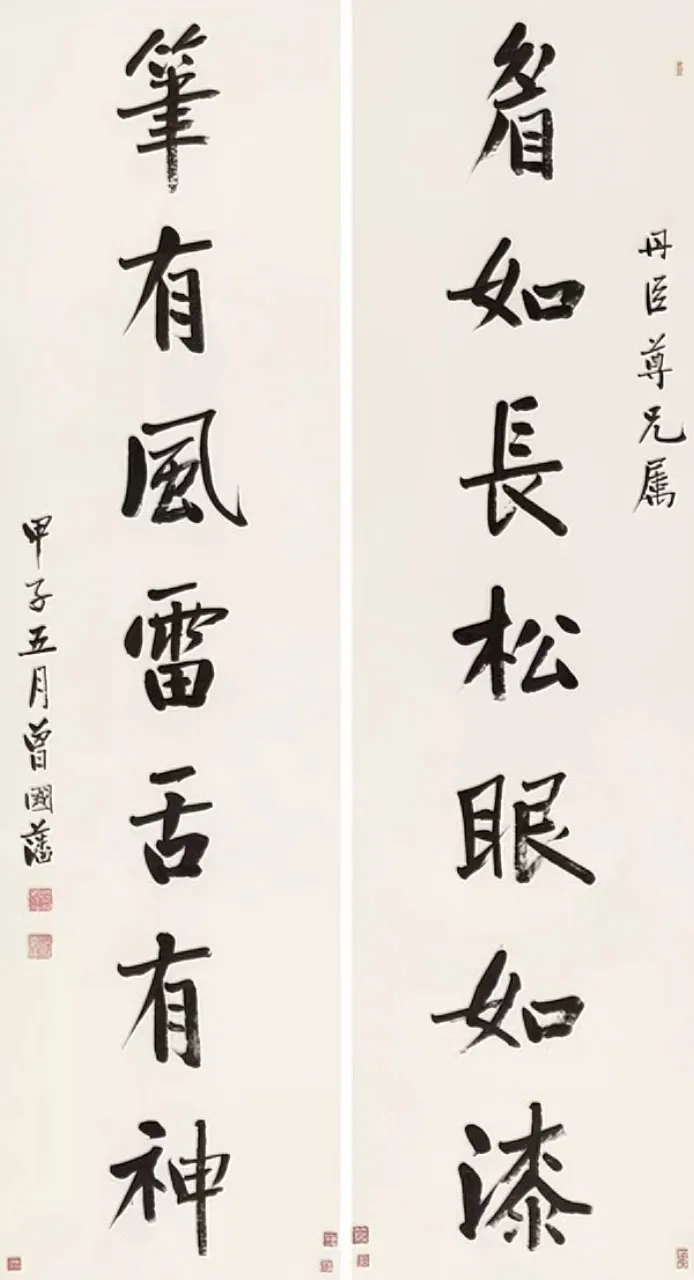 丹臣尊兄属
眉如長松眼如漆
筆有風雷舌有神
甲子五月曾國藩